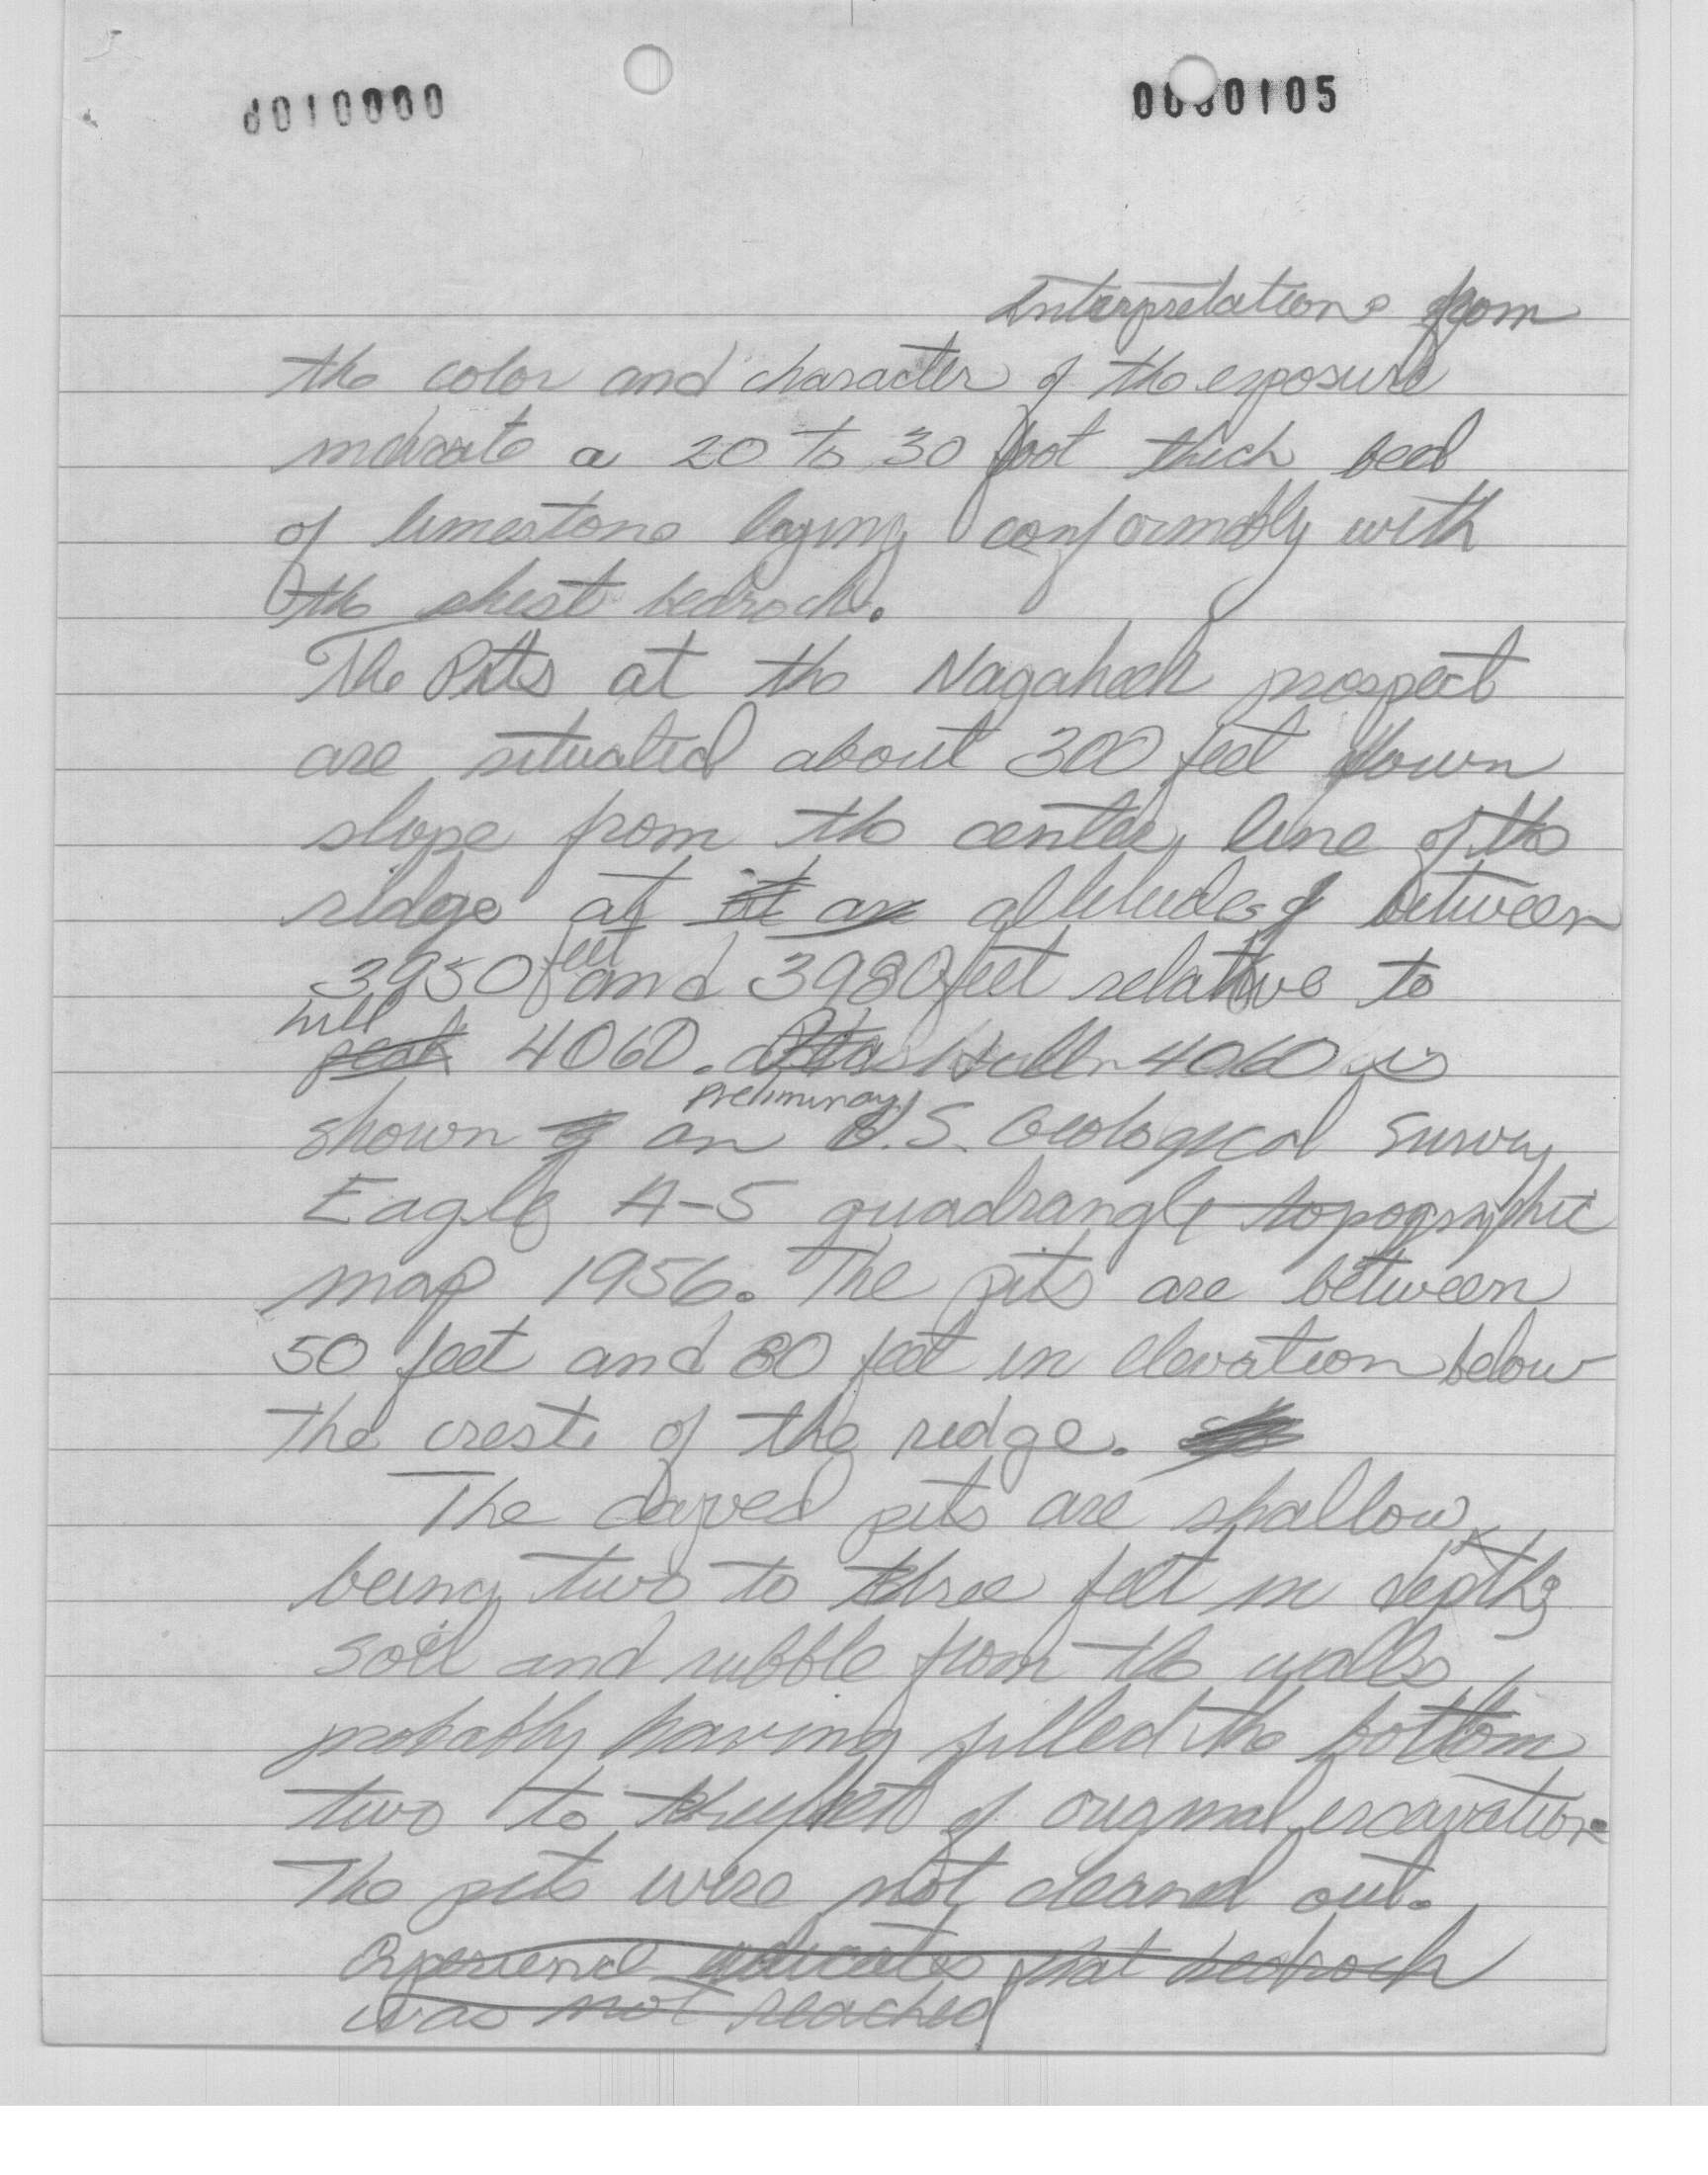 0010000 0000105
Interpretations from
the color and character of the exposure
indicate a 20 to 30 foot thick bed
of limestone laying conformably with
the shist bedrock.
The Pits at the prospect
are situated about 300 feet down
slope from the center line of the
ridge at it an altitudes of between
3950 feet and 3980 feet relative to
hill
peak 4060. Hill 4060 is
preliminary
shown on U.S. Geological Survey
Eagle A-5 quadrangle topographic
map 1956. The pits are between
50 feet and 80 feet in elevation below
the crest of the ridge.
The caved pits are shallow,
being two to three feet in depth;
soil and rubble from the walls
probably having filled the bottom
two to three feet of original excavation.
The pits were not cleaned out.
Experience indicates that bedrock
was not reached